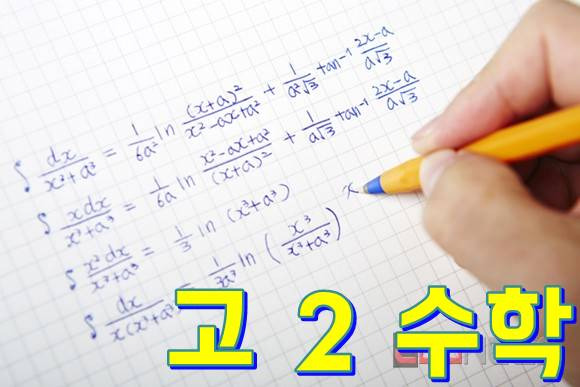 ∫ dx/(x³+a³) = 1/(6a²) ln (x+a)²/(x²-ax+a²) + 1/(a²√3) tan⁻¹ (2x-a)/(a√3)
∫ xdx/(x³+a³) = 1/(6a) ln (x²-ax+a²)/(x+a)² + 1/(a√3) tan⁻¹ (2x-a)/(a√3)
∫ x²dx/(x³+a³) = 1/3 ln (x³+a³)
∫ dx/(x(x³+a³)) = 1/(3a³) ln (x³/(x³+a³))
고 2 수학